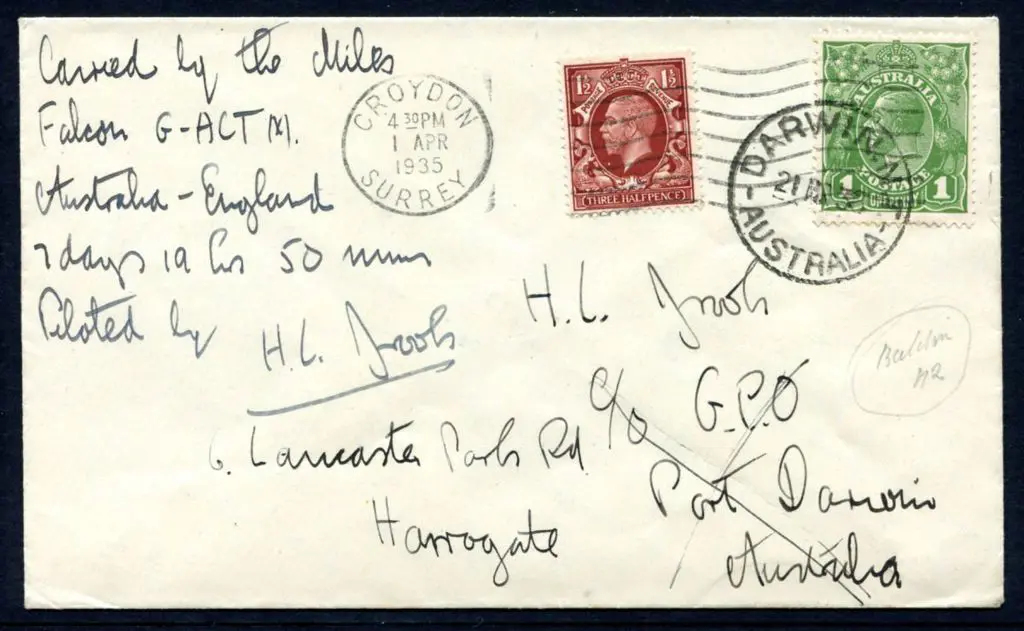 Carried by the Miles
Falcon G-ACTM.
Australia - England
7 days 19 hrs 50 mins
Piloted by H.L. Brook
CROYDON
4 30 PM
1 APR
1935
SURREY
1½ 1½
POSTAGE REVENUE
(THREE HALFPENCE)
AUSTRALIA
1 POSTAGE 1
DARWIN
21
AUSTRALIA
H.L. Brook
c/o G.P.O
Port Darwin
Australia
6. Lancaster Park Rd
Harrogate